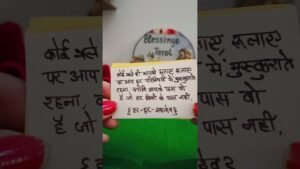 Blessings
by Tarot
कोई भले ही आपको सताए, रुलाए
पर आप हर परिस्थिति में मुस्कुराते
रहना, क्योंकि आपके पास वो
है जो हर किसी के पास नहीं,
हर-हर-महादेव